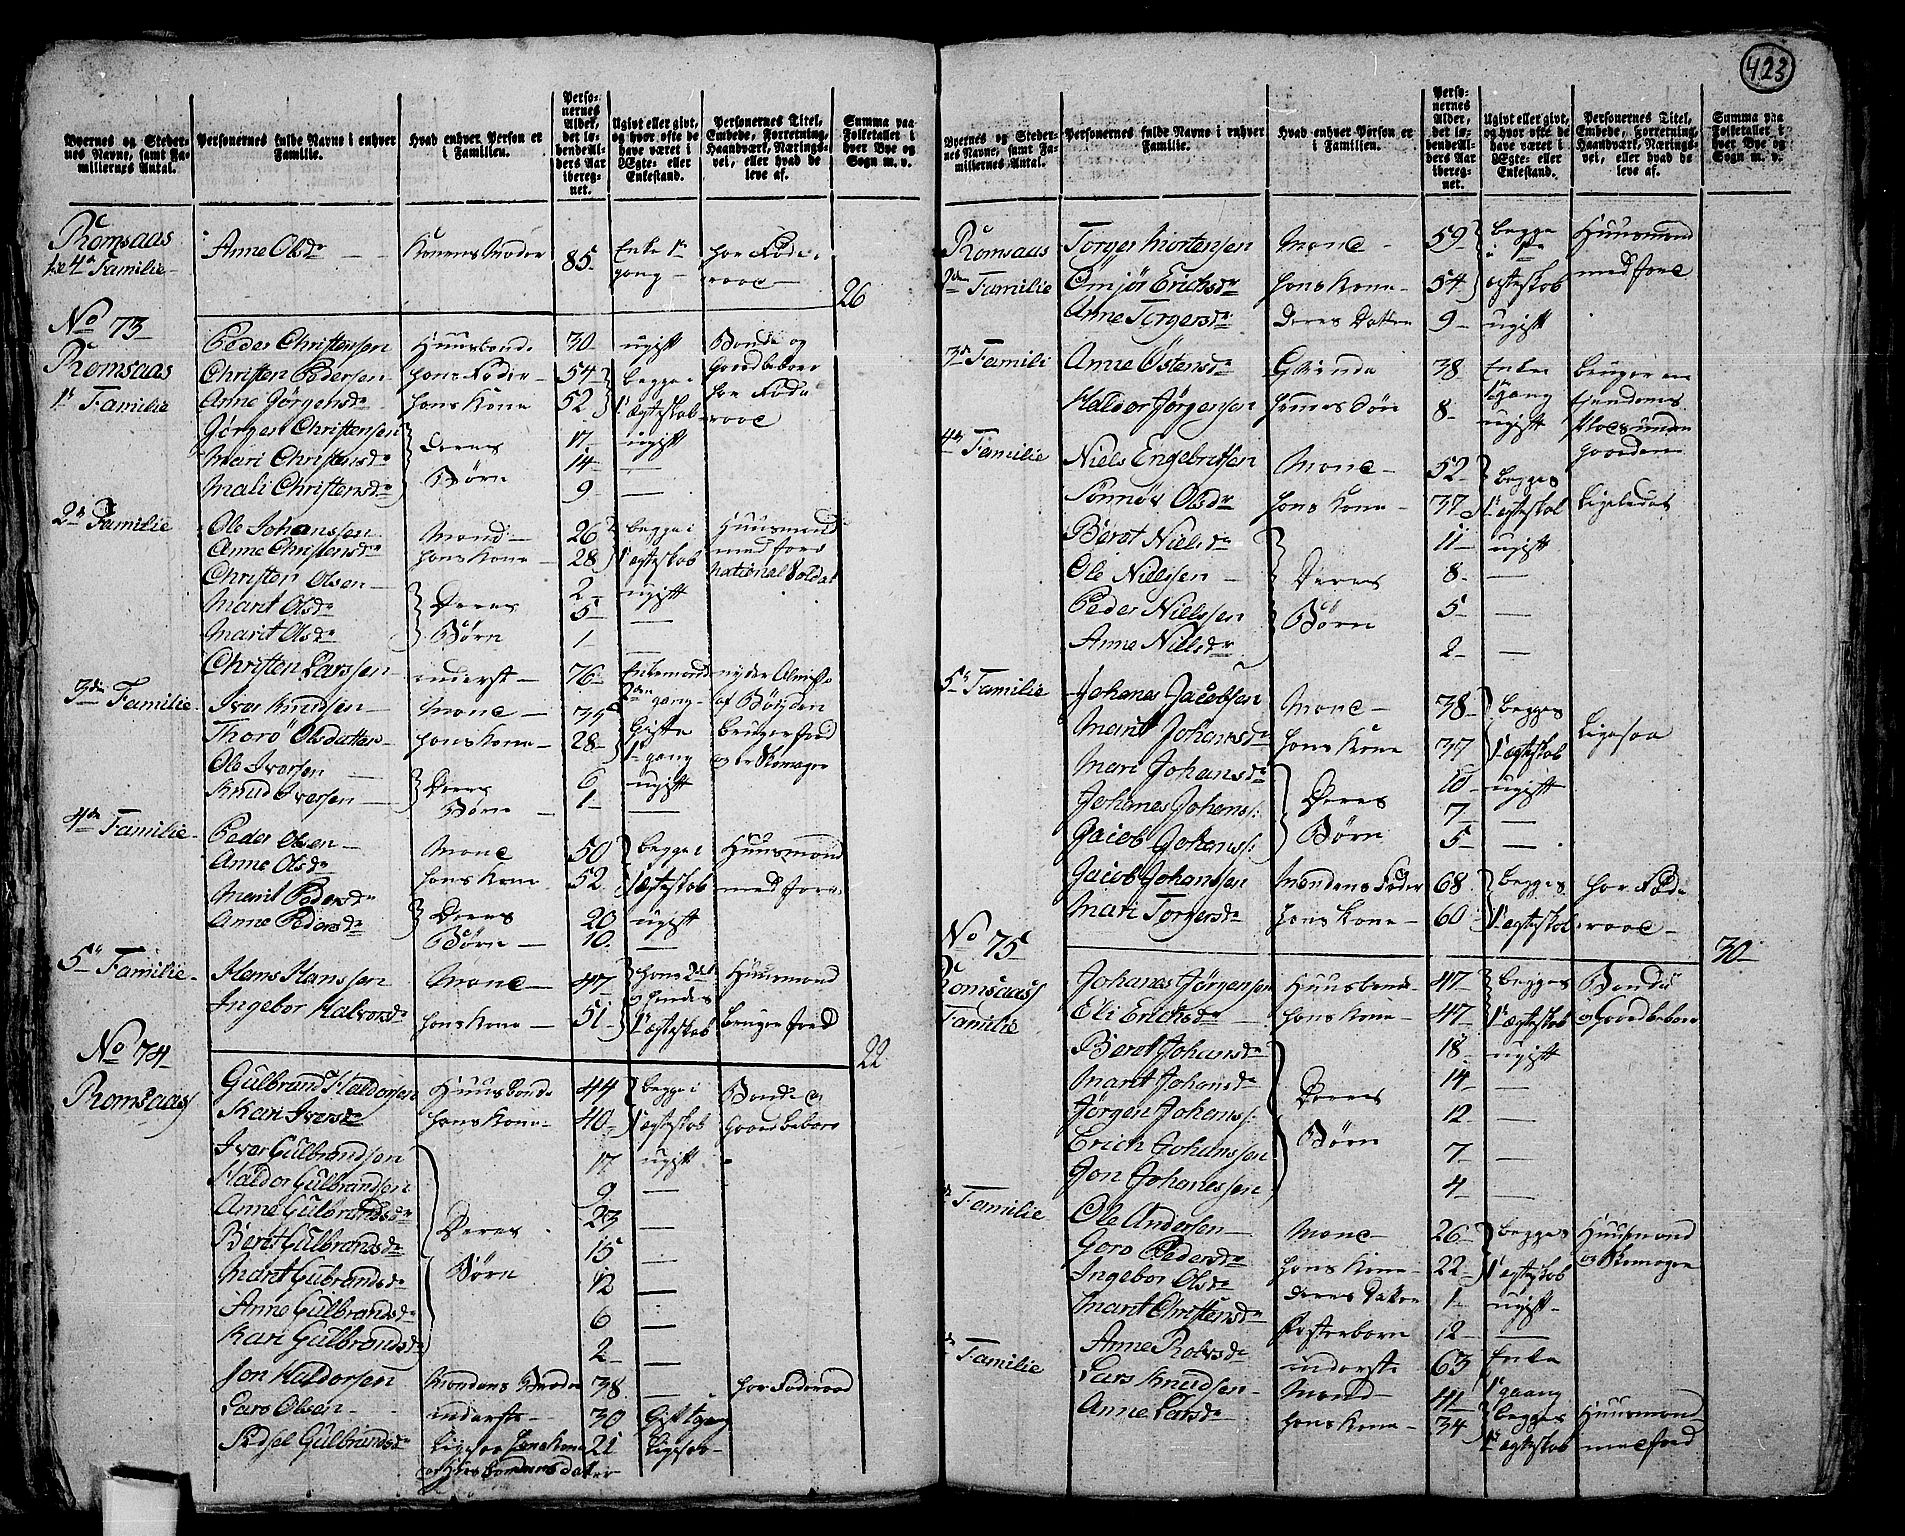 423
Byernes og Stedernes Navne, samt Familiernes Antal.
Personernes fulde Navne i enhver Familie.
Hvad enhver Person er i Familien.
Personernes Alder, det løbende Alders Aar iberegnet.
Ugivt eller givt, og hvor ofte de have været i Ægte- eller Enkestand.
Personernes Titel, Embede, Forretning, Haandværk, Næringsvei, eller hvad de leve af.
Summa paa Folketallet i hver Bye og Sogn m. v.
Romsaas Anne Olsdr Konens Moder 85 Enke 1te gang har Føderaad
4de Familie
26
No 73
Romsaas
1te Familie
Peder Christensen Huusbonde 30 ugift Bonde og Gaardbeboer
Christen Pedersen hans Fader 54 begge i har Føderaad
Anne Jørgensdr hans Kone 52 1te ægteskab
Jørgen Christensen Deres 17 ugift
Mari Christensdr Børn 14 —
Mali Christensdr 9 —
2den Familie
Ole Johanssen Mand 26 begge i Huusmand
Anne Christensdr hans Kone 28 1te ægteskab med jord National Soldat
Christen Olsen Deres 2 ugift
Marit Olsdr Børn 5 —
Marit Olsdr 1 —
Christen Larssen inderst 76 Enkemand 2den gang nyder Almisse af Bøigden
3die Familie
Iver Knudsen Mand 35 Gifte bruger jord
Thorø Olsdatter hans Kone 28 1te gang og er Skomager
Ole Iversen Deres 6 ugift
Knud Iversen Børn 1 —
4de Familie
Peder Olsen Mand 50 begge i Huusmand
Anne Olsdr hans Kone 52 1te ægteskab med jord
Marit Pedersdr Deres 20 ugift
Anne Pedersdr Børn 10 —
5te Familie
Hans Hanssen Mand 47 Huusmand
Ingebor Halvorsdr hans Kone 51 1te ægteskab bruger jord
22
No 74
Romsaas
Gulbrand Haldorsen Huusbonde 44 begge i Bonde og
Kari Iversdr hans Kone 40 1te ægteskab Gaardbeboer
Iver Gulbrandsen 17 ugift
Haldor Gulbrandsen 9 —
Anne Gulbrandsdr Deres 23 —
Berit Gulbrandsdr 15 —
Marit Gulbrandsdr Børn 12 —
Anne Gulbrandsdr 6 —
Kari Gulbrandsdr 2 —
Jon Haldorsen Mandens Broder 38 — har Føderaad
Lars Olsen inderste 30 Gift 1 gang
Sidsel Gulbrandsdr 21
Byernes og Stedernes Navne, samt Familiernes Antal.
Personernes fulde Navne i enhver Familie.
Hvad enhver Person er i Familien.
Personernes Alder, det løbende Alders Aar iberegnet.
Ugivt eller givt, og hvor ofte de have været i Ægte- eller Enkestand.
Personernes Titel, Embede, Forretning, Haandværk, Næringsvei, eller hvad de leve af.
Summa paa Folketallet i hver Bye og Sogn m. v.
Romsaas
2den Familie
Torger Mortensen Mand 59 begge i 1te Huusmand
Embjør Erichsdr hans Kone 54 ægteskab med jord
Anne Torgersdr Deres Datter 9 ugift
3de Famili
Anne Østensdr Qvinde 38 Enke 1te gang
Haldor Jørgensen hennes Søn 8 ugift
4de Familie
Niels Engebritsen Mand 52 begge i
Sønnøv Olsdr hans Kone 37 1te ægteskab Ligeledes
Beret Nielsdr 11 ugift
Ole Nielssen Deres 8 —
Peder Nielssen Børn 5 —
Anne Nielsdr 2 —
5te Familie
Johanes Jacobsen Mand 38 begge i Ligesaa
Marit Johansdr hans Kone 37 1te ægteskab
Mari Johansdr Deres 10 ugift
Johanes Johans: Børn 7 —
Jacob Johans: 5 —
Jacob Johansen Mandens Fader 68 begge i har Føde
Mari Torgersdr hans Kone 60 1te ægteskab raad
30
No 75
Romsaas
Familie
Johanes Jørgensen Huusbonde 47 begge i Bonde
Eli Erichsdr hans Kone 47 1te ægteskab og Gaardbeboer
Beret Johansdr 18 ugift
Marit Johansdr Deres 14 —
Jørgen Johans: 12 —
Erich Johanssen Børn 7 —
Jon Johanessen 4 —
Familie
Ole Andersen Mand 26 begge i Huusmand
Goro Pedersdr hans Kone 22 1te ægteskab og Skomager
Ingebor Olsdr Deres Datter 1 ugift
Marit Christensdr Fosterbarn 12 —
Anne Rolvsdr inderste 63 Enke 1te gang
Familie
Lars Knudsen Mand 41 begge i Huusmand
Anne Larsdr hans Kone 34 1te ægteskab med jord